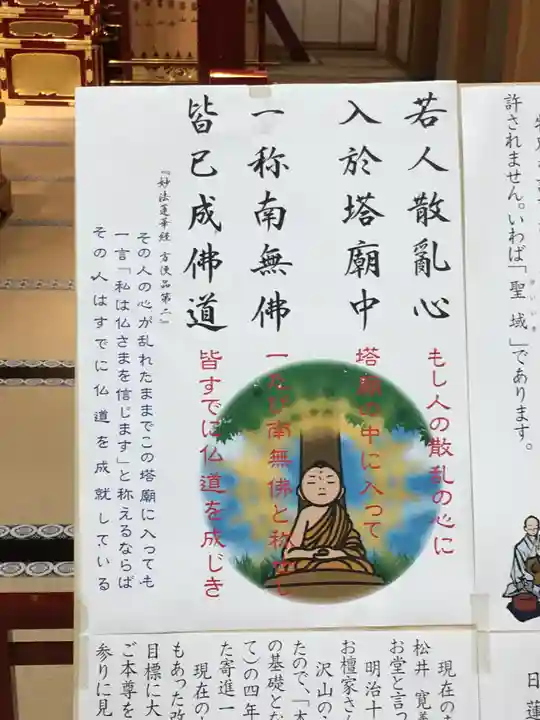 若人散亂心
入於塔廟中
一称南無佛
皆已成佛道
もし人の散乱の心に
塔廟の中に入って
一たび南無佛と称せし
皆すでに仏道を成じき
『妙法蓮華経 方便品第二』
その人の心が乱れたままでこの塔廟に入っても
一言「私は仏さまを信じます」と称えるならば
その人はすでに仏道を成就している
許されません。いわば「聖域」であります。
せいいき
日蓮
現在の
松井 寛
お堂と言
明治十
お檀家さ
沢山の
たので、「本
の基礎とな
て）の四年
た寄進一
現在の
もあった改
目標に大
ご本尊を
参りに見